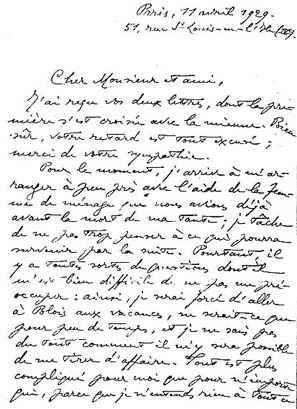 Paris, 11 avril 1929.
51, rue St Louis-en-l'Ile (IVe).
Cher Monsieur et ami,
J'ai reçu vos deux lettres, dont la pre-
mière s'est croisée avec la mienne. Bien
sûr, votre retard est tout excusé ;
merci de votre sympathie.
Pour le moment, j'arrive à m'ar-
ranger à peu près avec l'aide de la fem-
me de ménage que nous avions déjà
avant la mort de ma tante ; je tâche
de ne pas trop penser à ce qui pourra
survenir par la suite. Pourtant, il
y a toutes sortes de questions dont il
m'est bien difficile de ne pas me pré-
occuper : ainsi, je serai forcé d'aller
à Blois aux vacances, ne serait-ce que
pour peu de temps, et je ne sais pas
du tout comment il m'y sera possible
de me tirer d'affaire. Tout est plus
compliqué pour moi que pour n'importe
qui, parce que je n'entends rien à tout ce